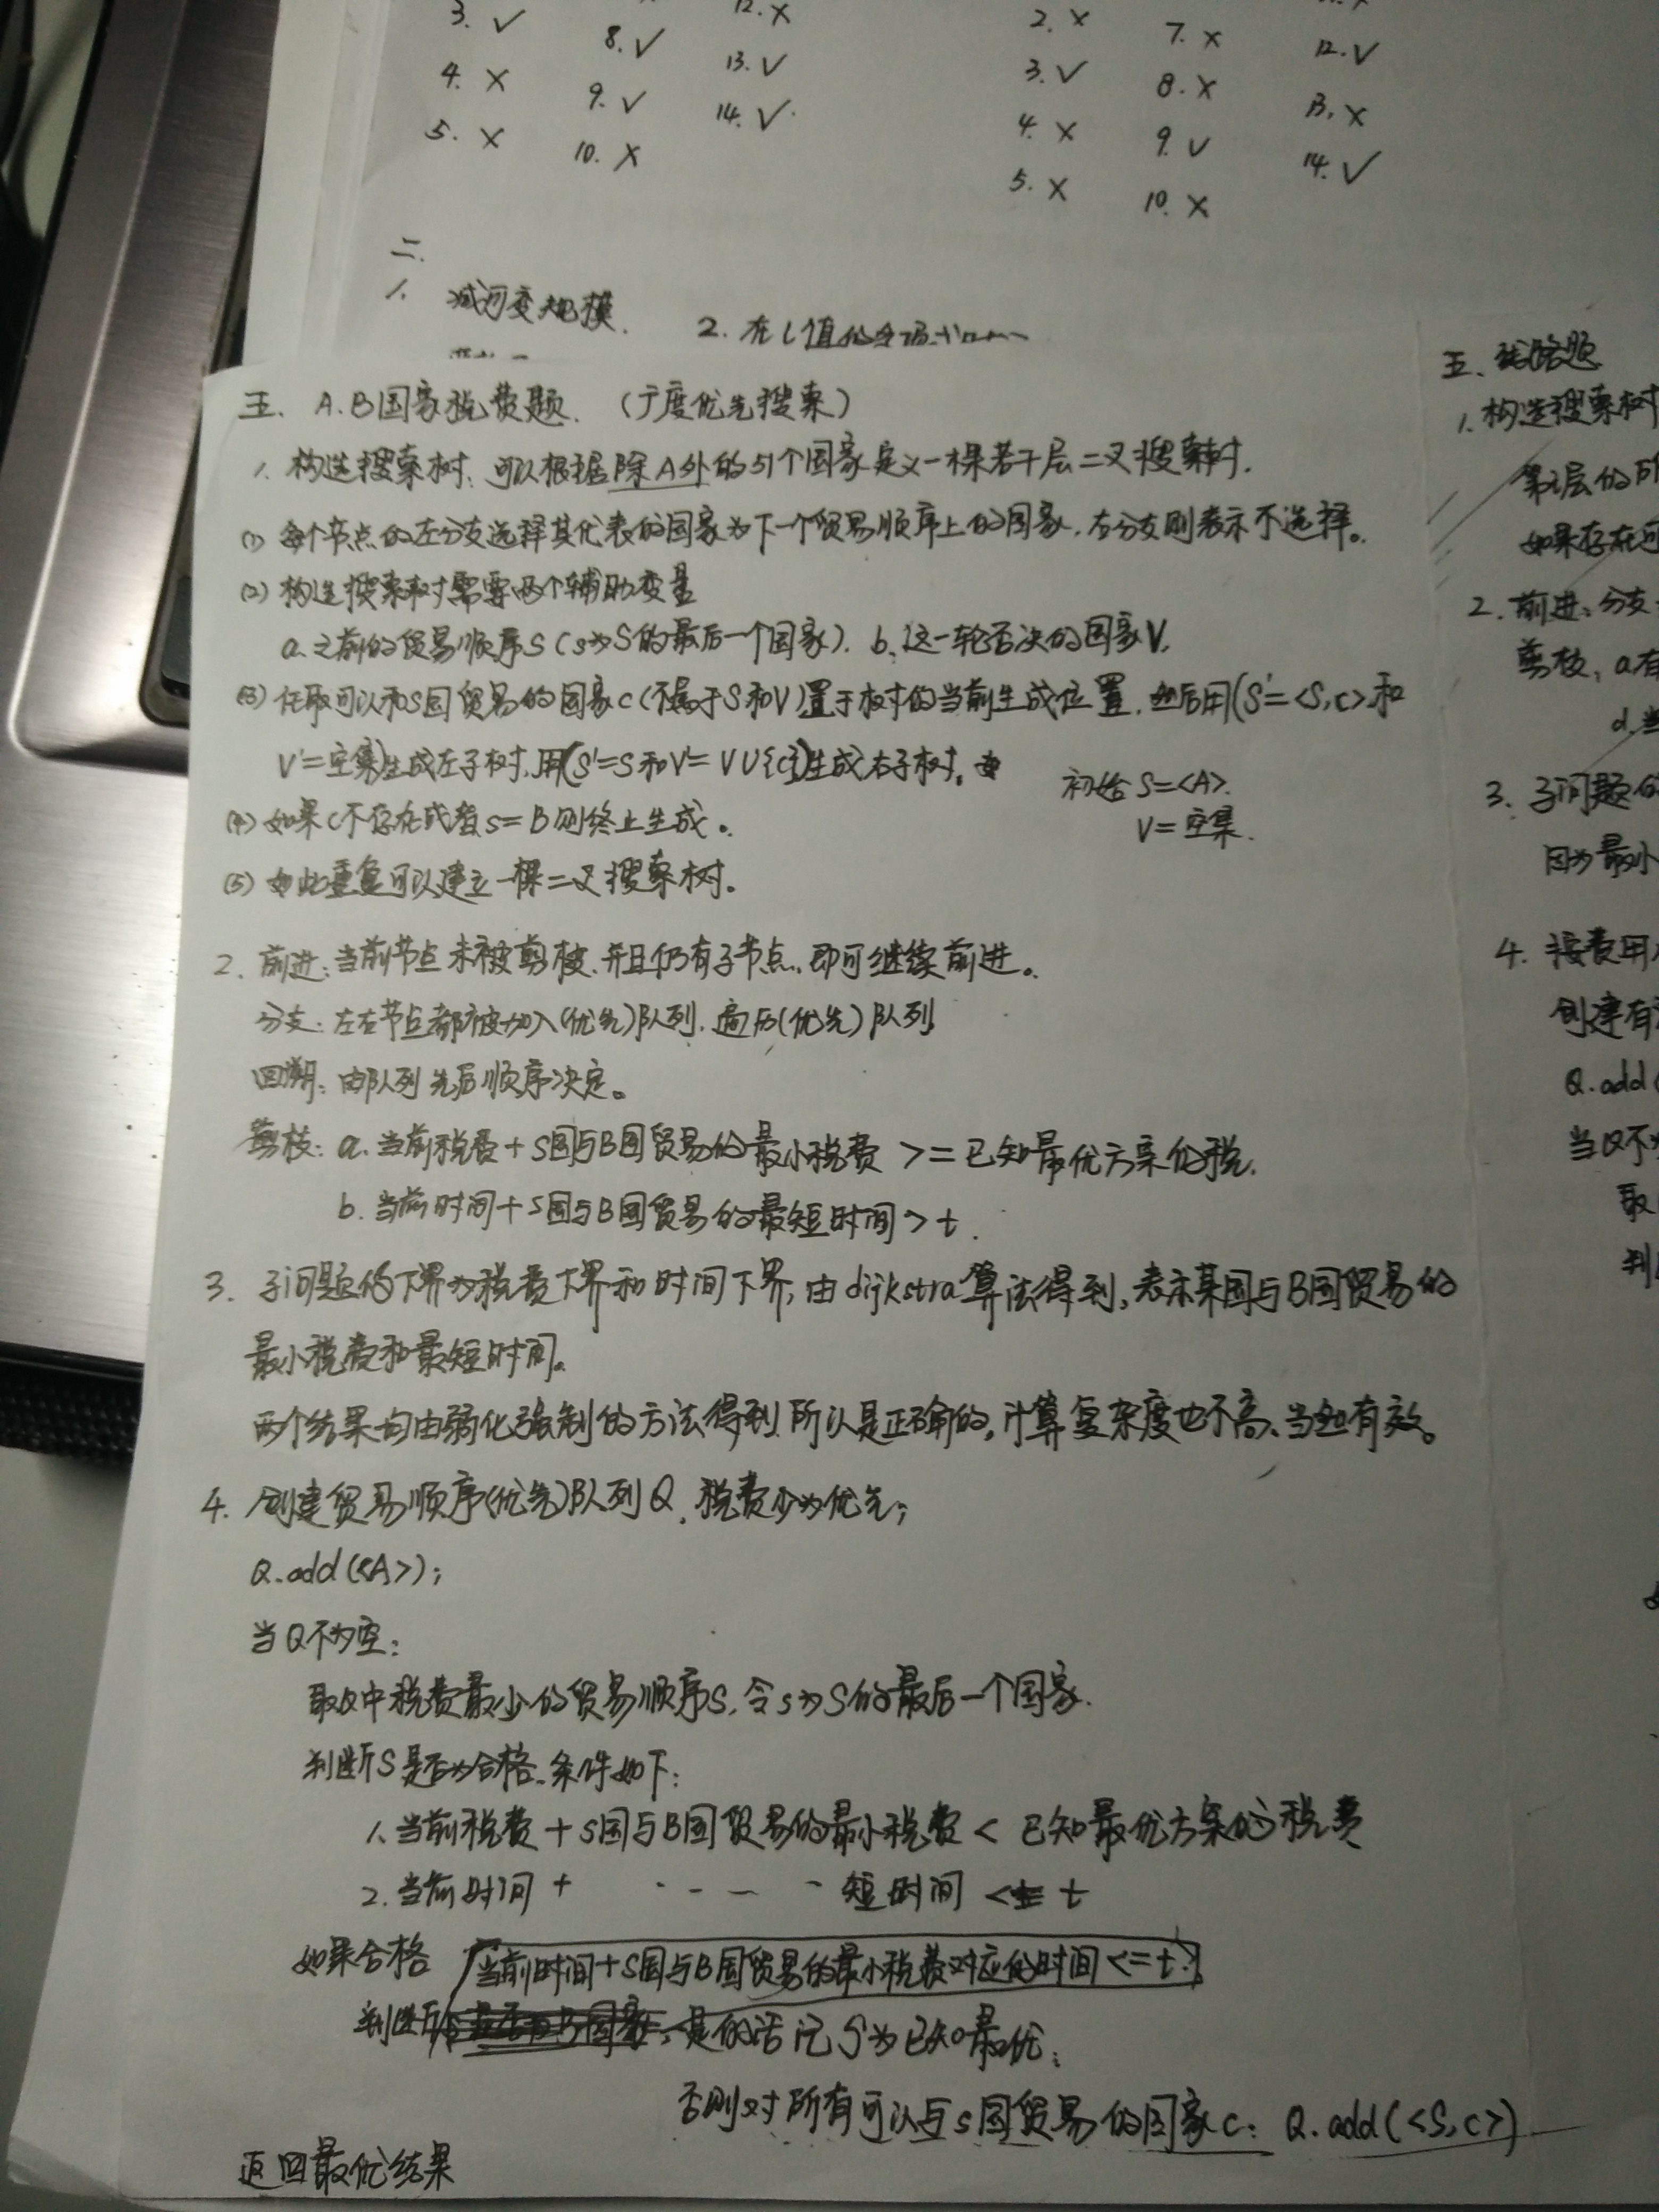 3. ✓
8. ✓
12. ×
4. ×
9. ✓
13. ✓
5. ×
10. ×
14. ✓
2. ×
7. ×
12. ✓
3. ✓
8. ×
13. ×
4. ×
9. ✓
14. ✓
5. ×
10. ×
二.
1. 减可变规模.
2. 在L值的
五. A.B国家税费题. (广度优先搜索)
1. 构造搜索树: 可以根据除A外的51个国家定义一棵若干层二叉搜索树.
(1) 每个节点的左分支选择其代表的国家为下一个贸易顺序上的国家, 右分支则表示不选择。
(2) 构造搜索树需要两个辅助变量
a. 之前的贸易顺序S (s为S的最后一个国家). b. 这一轮否决的国家V.
(3) 任取可以和s国贸易的国家c(不属于S和V)置于树的当前生成位置. 然后用(S'=<S,c>和
V'=空集)生成左子树, 用(S'=S和V'=V∪{c})生成右子树。
初始 S=<A>.
V=空集.
(4) 如果c不存在或者s=B则终止生成。
(5) 如此重复可以建立一棵二叉搜索树。
2. 前进: 当前节点未被剪枝, 并且仍有子节点, 即可继续前进。
分支: 左右节点都被加入(优先)队列, 遍历(优先)队列
回溯: 由队列先后顺序决定。
剪枝: a. 当前税费+s国与B国贸易的最小税费 >= 已知最优方案的税.
b. 当前时间+s国与B国贸易的最短时间 > t.
3. 子问题的下界为税费下界和时间下界, 由dijkstra算法得到, 表示某国与B国贸易的
最小税费和最短时间。
两个结果均由弱化强制的方法得到 所以是正确的, 计算复杂度也不高、当然有效。
4. 创建贸易顺序(优先)队列Q, 税费少为优先;
Q.add(<A>);
当Q不为空:
取Q中税费最少的贸易顺序S, 令s为S的最后一个国家.
判断S是否为合格. 条件如下:
1. 当前税费+s国与B国贸易的最小税费 < 已知最优方案的税费
2. 当前时间 + · - — - 短时间 <= t
如果合格
当前时间+s国与B国贸易的最小税费对应的时间<=t
判断 , 是的话记S为已知最优;
否则对所有可以与s国贸易的国家c: Q.add(<S,c>)
返回最优结果
五. 线路题
1. 构造搜索树
第i层的
如果存在
2. 前进: 分支
剪枝: a.
d.
3. 子问题的
因为最小
4. 按费用
创建有
Q.add(
当Q不
取
判